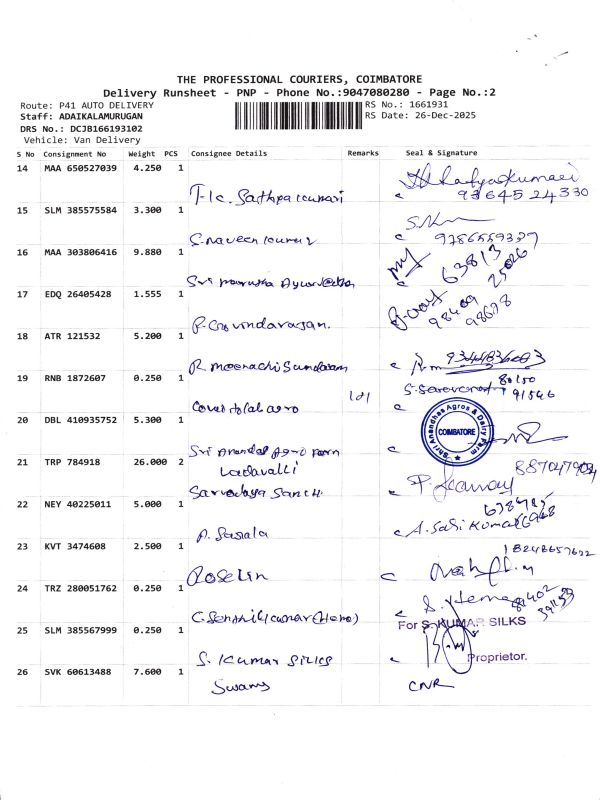 THE PROFESSIONAL COURIERS, COIMBATORE
Delivery Runsheet - PNP - Phone No.:9047080280 - Page No.:2
Route: P41 AUTO DELIVERY
RS No.: 1661931
Staff: ADAIKALAMURUGAN
RS Date: 26-Dec-2025
DRS No.: DCJB166193102
Vehicle: Van Delivery
S No Consignment No Weight PCS Consignee Details Remarks Seal & Signature
14 MAA 650527039 4.250 1
T-lc. Sathya kumari
93645 24330
15 SLM 385575584 3.300 1
S.naveen kumar
9786559339
16 MAA 303806416 9.880 1
Sri
63813
25026
17 EDQ 26405428 1.555 1
P. Govindarajan.
98409
98678
18 ATR 121532 5.200 1
R. meenachi Sundaram
19 RNB 1872607 0.250 1
80150
91546
20 DBL 410935752 5.300 1
Sri Anandas Agro Farm
Vadavalli
Shri Anandhas Agros & Dairy Farm
COIMBATORE
21 TRP 784918 26.000 2
8870479034
Sarvodaya Sanchi
22 NEY 40225011 5.000 1
A. Sasi Kumar
P. Sasala
23 KVT 3474608 2.500 1
Roselin
24 TRZ 280051762 0.250 1
S. Hema
C. Senthilkumar (Hero)
25 SLM 385567999 0.250 1
For S. KUMAR SILKS
Proprietor.
S. Kumar Silks
26 SVK 60613488 7.600 1
Swamy
CNR